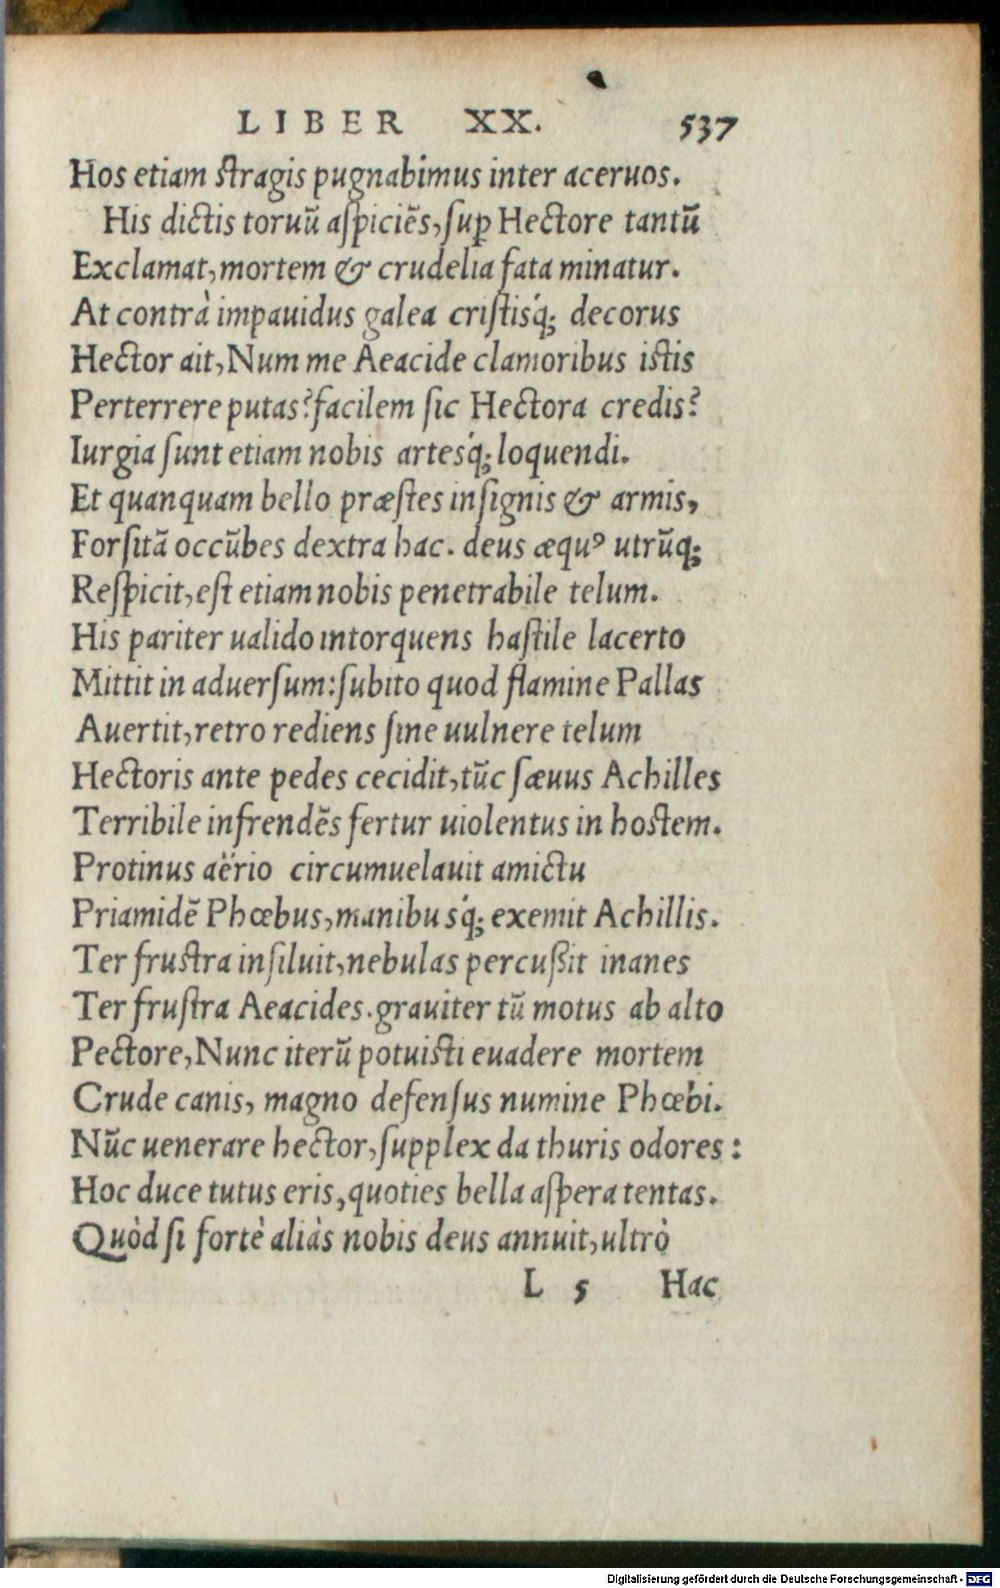 LIBER XX. 537
Hos etiam stragis pugnabimus inter aceruos.
His dictis toruũ aspiciẽs, suꝑ Hectore tantũ
Exclamat, mortem & crudelia fata minatur.
At contrà impauidus galea cristisq́; decorus
Hector ait, Num me Aeacide clamoribus istis
Perterrere putas? facilem sic Hectora credis?
Iurgia sunt etiam nobis artesq́; loquendi.
Et quanquam bello præstes insignis & armis,
Forsitã occũbes dextra hac. deus æquꝰ utrũq;
Respicit, est etiam nobis penetrabile telum.
His pariter ualido intorquens hastile lacerto
Mittit in aduersum: subito quod flamine Pallas
Auertit, retro rediens sine uulnere telum
Hectoris ante pedes cecidit, tũc sæuus Achilles
Terribile infrendẽs fertur uiolentus in hostem.
Protinus aërio circumuelauit amictu
Priamidẽ Phœbus, manibusq́; exemit Achillis.
Ter frustra insiluit, nebulas percußit inanes
Ter frustra Aeacides. grauiter tũ motus ab alto
Pectore, Nunc iterũ potuisti euadere mortem
Crude canis, magno defensus numine Phœbi.
Nũc uenerare hector, supplex da thuris odores:
Hoc duce tutus eris, quoties bella aspera tentas.
Quòd si fortè aliàs nobis deus annuit, ultrò
L 5 Hac
Digitalisierung gefördert durch die Deutsche Forschungsgemeinschaft - DFG